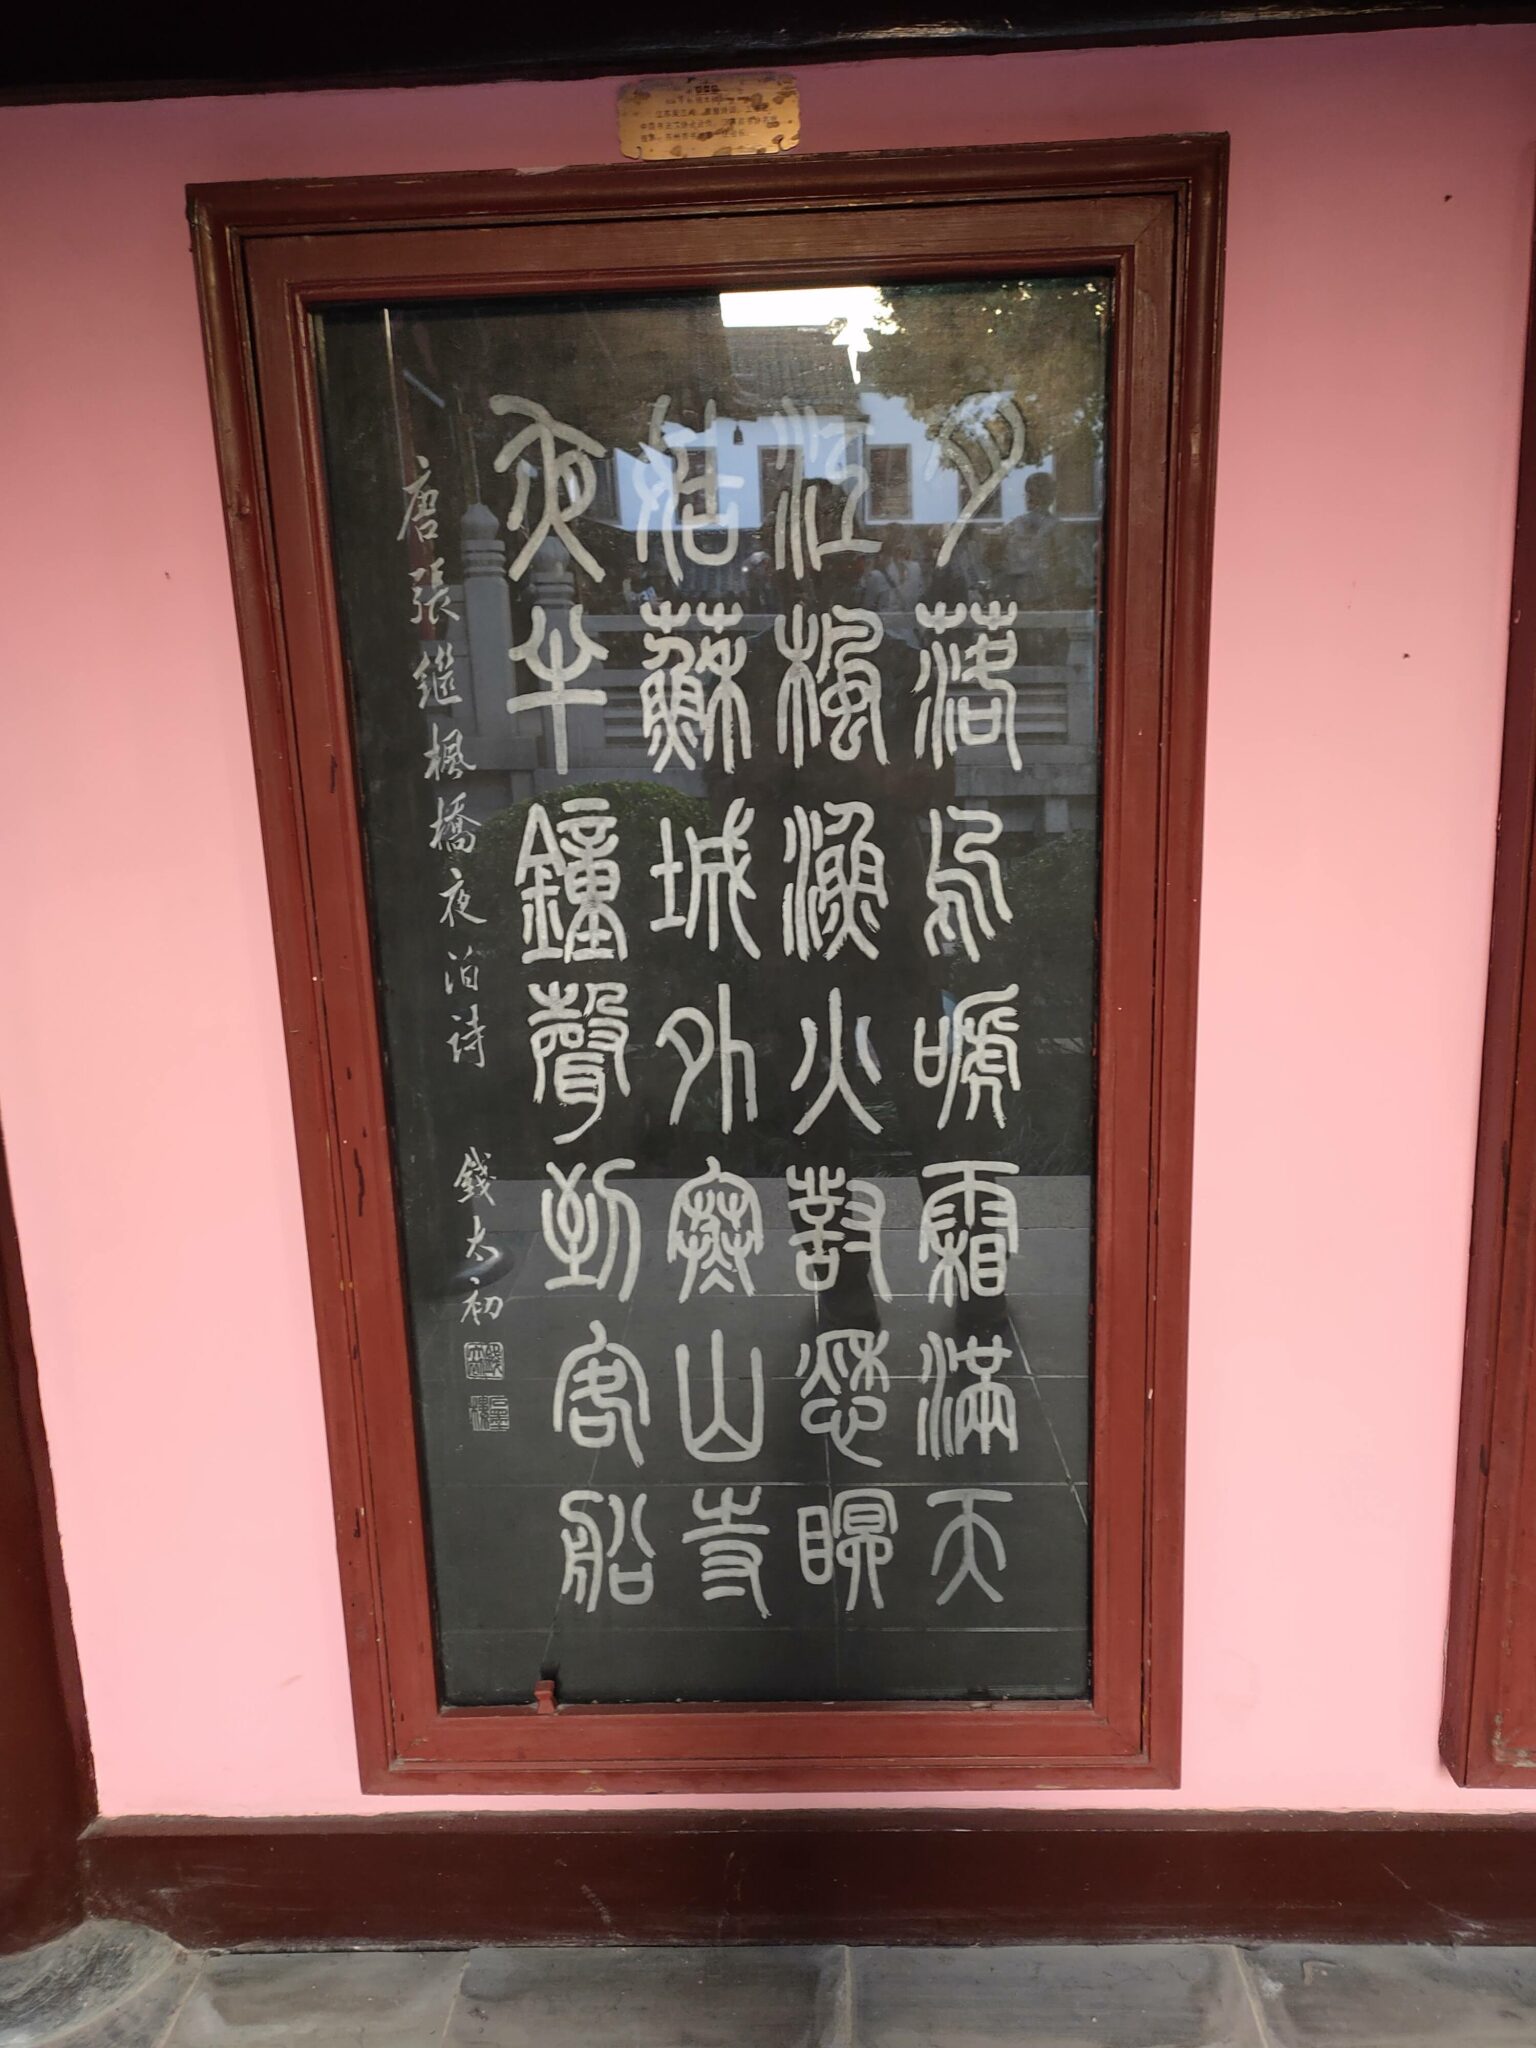 月落烏嗁霜滿天
江楓漁火對愁眠
姑蘇城外寒山寺
夜半鐘聲到客船
唐張繼楓橋夜泊詩 錢太初